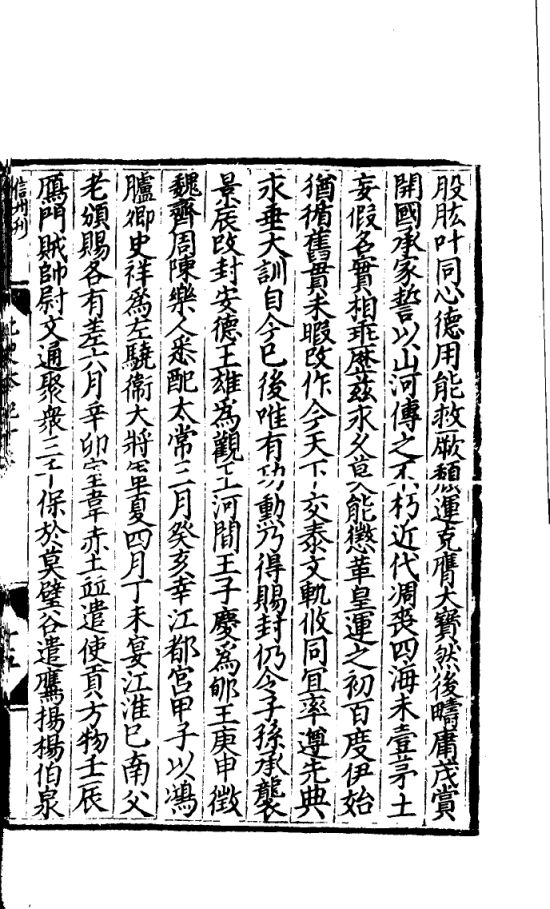 股肱叶同心德用能救厥頹運克膺大寶然後疇庸茂賞
開國承家誓以山河傳之不朽近代凋喪四海未壹茅土
妄假名實相乖歷茲永久莫能懲革皇運之初百度伊始
猶循舊貫未暇改作今天下交泰文軌攸同宜率遵先典
永垂大訓自今已後唯有功勳乃得賜封仍令子孫承襲
景辰改封安德王雄為觀王河間王子慶為郇王庚申徵
魏齊周陳樂人悉配太常三月癸亥幸江都宮甲子以鴻
臚卿史祥為左驍衛大將軍夏四月丁未宴江淮已南父
老頒賜各有差六月辛卯室韋赤土並遣使貢方物壬辰
鴈門賊帥尉文通聚衆三千保於莫壁谷遣鷹揚楊伯泉
信州刊